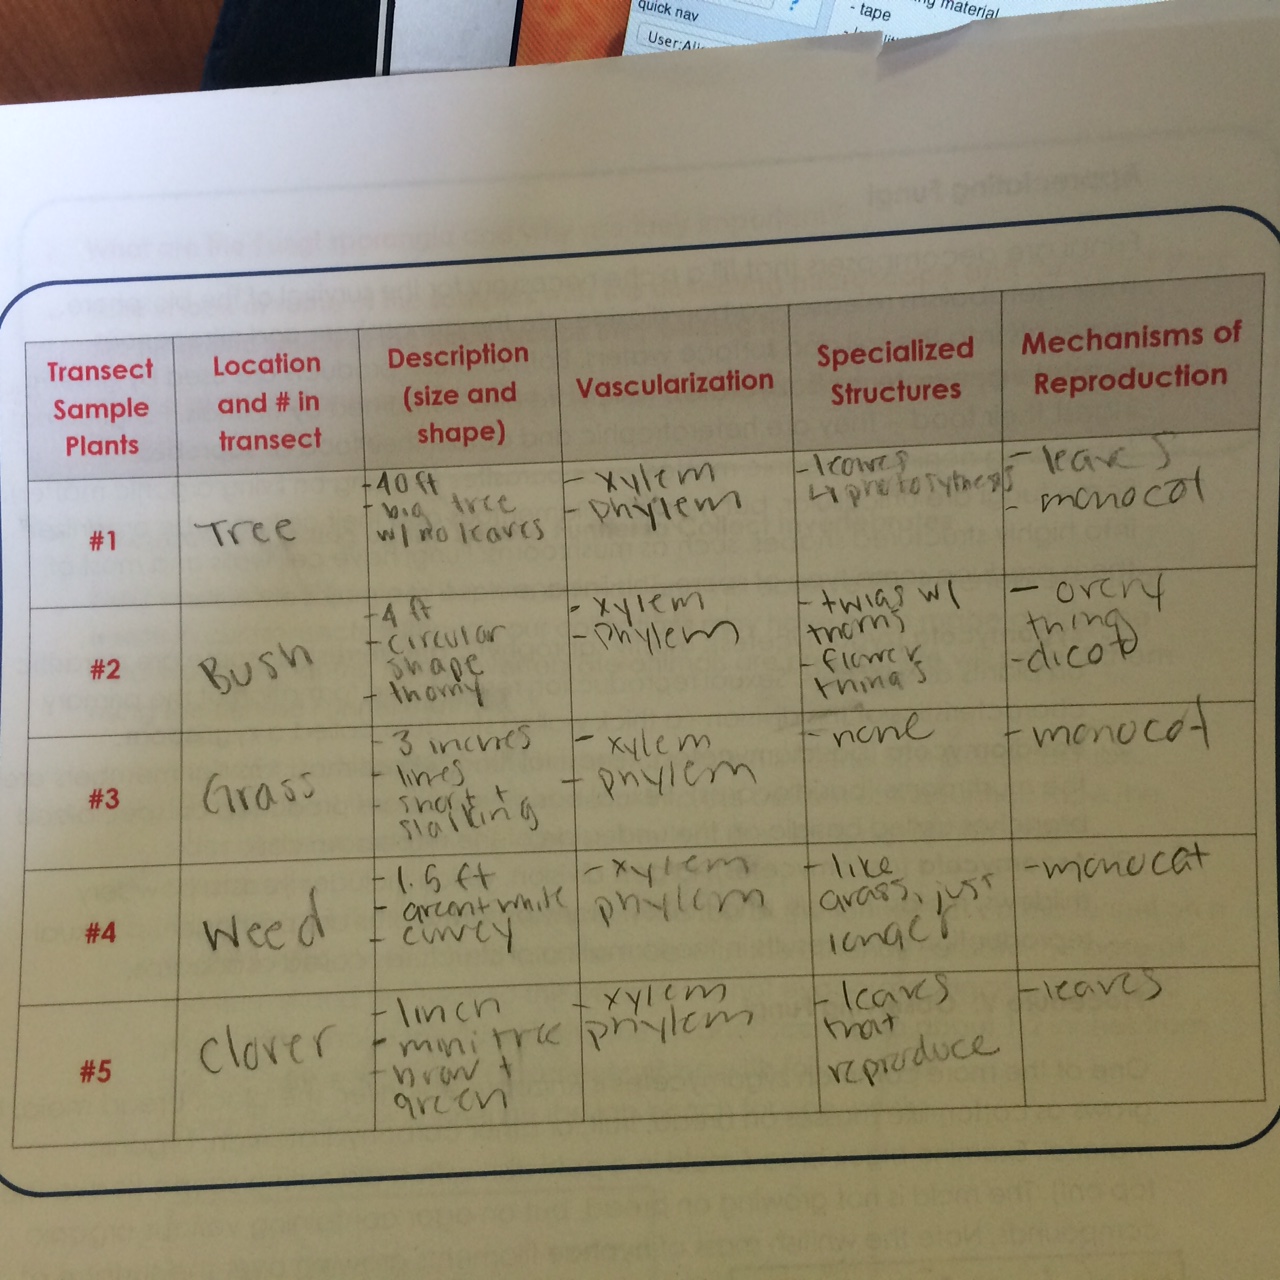 quick nav
- tape
material
Transect
Sample
Plants
Location
and # in
transect
Description
(size and
shape)
Vascularization
Specialized
Structures
Mechanisms of
Reproduction
#1
Tree
- 40 ft
- big tree
w/ no leaves
- xylem
- phylem
- leaves
- leaves
- monocot
#2
Bush
- 4 ft
- circular
shape
- thorny
- xylem
- phylem
- twigs w/
thorns
- flower
things
thing
- dicot
#3
Grass
- 3 inches
- lines
- short +
stalking
- xylem
- phylem
- none
- monocot
#4
Weed
- 1.5 ft
- green + white
- curvey
- xylem
phylem
- like
grass, just
longer
- monocat
#5
Clover
- 1 inch
- mini tree
- brow +
green
- xylem
phylem
- leaves
that
reproduce
- leaves